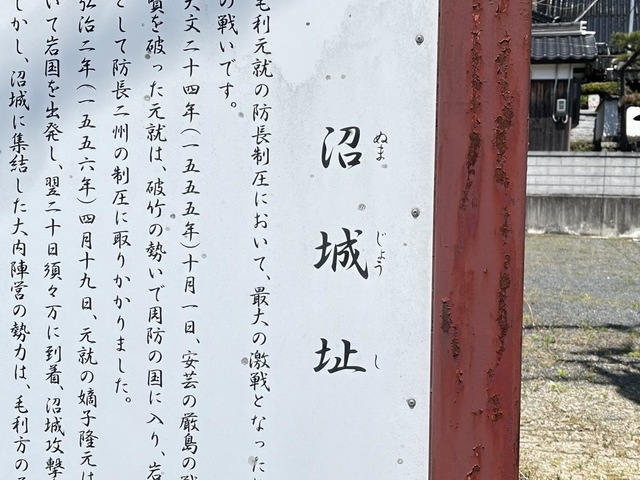 沼城址
ぬまじょうし
毛利元就の防長制圧において、最大の激戦となった
の戦いです。
天文二十四年(一五五五年)十月一日、安芸の厳島の
を破った元就は、破竹の勢いで周防の国に入り、岩
として防長二州の制圧に取りかかりました。
弘治二年(一五五六年)四月十九日、元就の嫡子隆元は
いて岩国を出発し、翌二十日須々万に到着、沼城攻撃
しかし、沼城に集結した大内陣営の勢力は、毛利方の